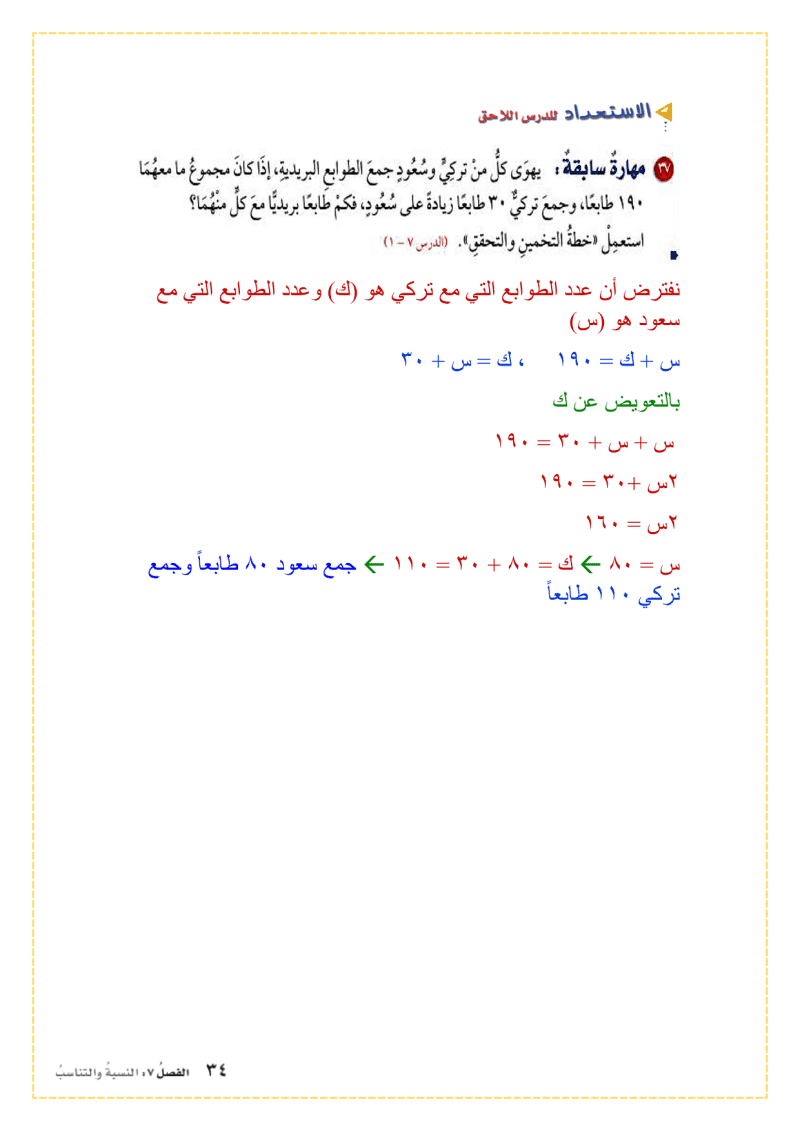 الاستعداد للدرس اللاحق
٣٧ مهارةٌ سابقةٌ: يهوَى كلُّ منْ تركيٍّ وسُعُودٍ جمعَ الطوابعِ البريديةِ، إذَا كانَ مجموعُ ما معهُمَا
١٩٠ طابعًا، وجمعَ تركيٌّ ٣٠ طابعًا زيادةً على سُعُودٍ، فكمْ طابعًا بريديًّا معَ كلٍّ منْهُمَا؟
استعمِلْ «خطةُ التخمينِ والتحققِ». (الدرس ٧ – ١)
نفترض أن عدد الطوابع التي مع تركي هو (ك) وعدد الطوابع التي مع
سعود هو (س)
س + ك = ١٩٠ ، ك = س + ٣٠
بالتعويض عن ك
س + س + ٣٠ = ١٩٠
٢س +٣٠ = ١٩٠
٢س = ١٦٠
س = ٨٠ ← ك = ٨٠ + ٣٠ = ١١٠ ← جمع سعود ٨٠ طابعاً وجمع
تركي ١١٠ طابعاً
٣٤ الفصلُ ٧: النسبةُ والتناسبُ